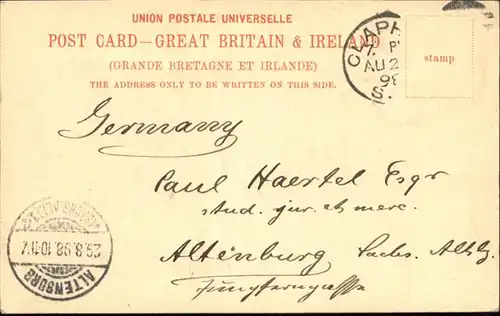 UNION POSTALE UNIVERSELLE
POST CARD—GREAT BRITAIN & IRELAND
(GRANDE BRETAGNE ET IRLANDE)
THE ADDRESS ONLY TO BE WRITTEN ON THIS SIDE.
CLAPH
7. P
AU 2
98
S.
stamp
Germany
Paul Haertel Esqr
stud. jur. et merc.
Altenburg Sachs. Altbg
Jungferngasse
29.8.98.10-11V.
ALTENBURG